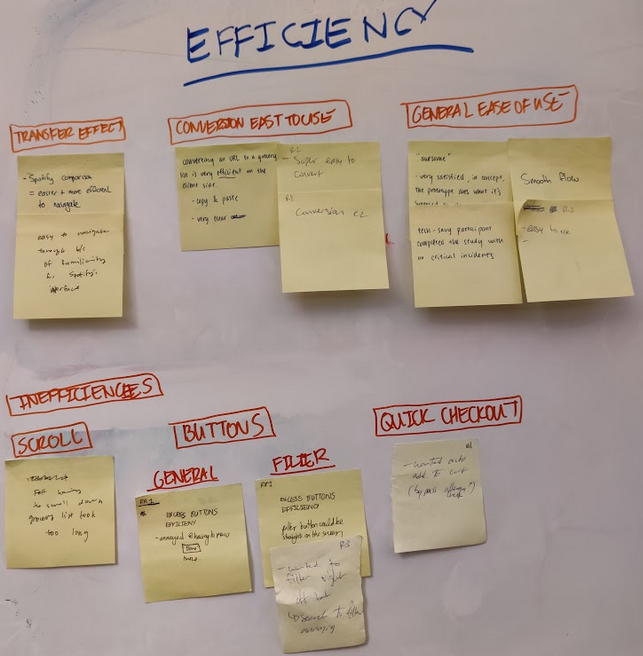 EFFICIENCY
TRANSFER EFFECT
- Spotify comparison
= easier + more efficient
to navigate
easy to navigate
through b/c
of familiarity
to Spotify's
interface
CONVERSION EASY TO USE
converting an URL to a grocery
list is very efficient on the
client side.
- copy & paste
- very clear
R2
- Super easy to
Convert
R3
Conversion ez
GENERAL EASE OF USE
- "awesome"
- very satisfied, in concept,
the prototype does what it's
tech-savvy participant
completed the study with
no critical incidents
Smooth flow
R3
- easy to use
-
INEFFICIENCIES
SCROLL
Felt having
to scroll down
grocery list took
too long
BUTTONS
GENERAL
EXCESS BUTTONS
EFFICIENCY
- annoyed @ having to press
FILTER
EXCESS BUTTONS
EFFICIENCY
filter button could be
straight on the screen
R3
- wanted to
filter right
off bat
↳ search to filter
annoying
QUICK CHECKOUT
- wanted auto
add to cart
(bypass